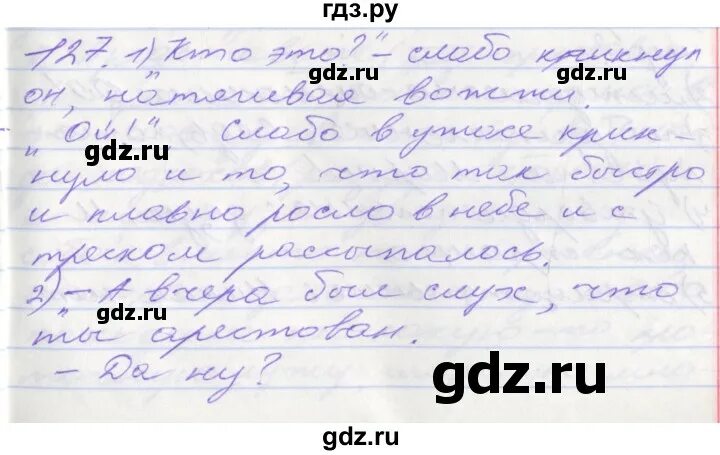 гдз.ру
127. 1) Кто это?" – слабо крикнул
он, натягивая вожжи.
„Ой!" Слабо в ужасе крик-
нуло и то, что так быстро
и плавно росло в небе и с
треском рассыпалось.
2) – А вчера был слух, что
ты арестован.
– Да ну?
gdz.ru
gdz.ru
gdz.ru
gdz.ru
gdz.ru
gdz.ru
gdz.ru
gdz.ru